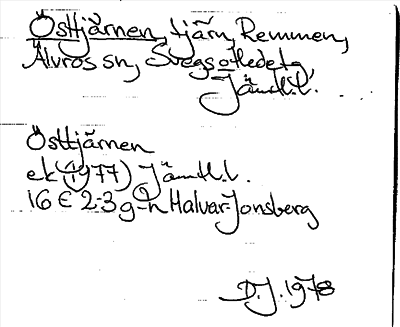 Östtjärnen, tjärn, Remmen,
Älvros sn, Svegs
Jämtl.l.
Östtjärnen
ek (1977) Jämtl.l.
16 E 2-3 g-h Halvar-Jonsberg
D.J. 1978